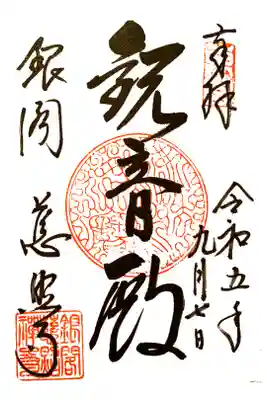 奉拝
令和五年
九月七日
観音殿
銀閣
慈照寺